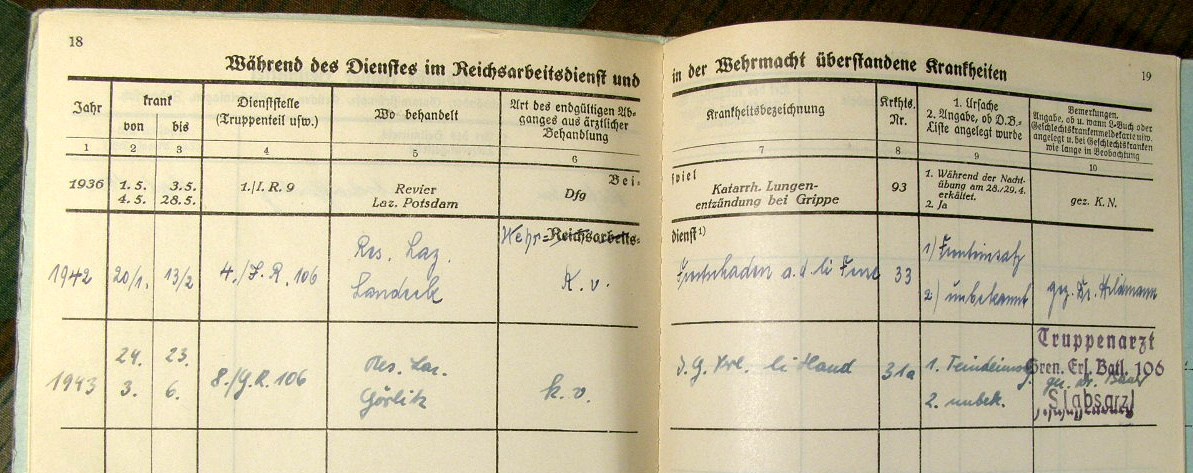 18
Während des Dienstes im Reichsarbeitsdienst und
in der Wehrmacht überstandene Krankheiten
19
Jahr
krank
von
bis
Dienststelle
(Truppenteil usw.)
Wo behandelt
Art des endgültigen Ab-
ganges aus ärztlicher
Behandlung
Krankheitsbezeichnung
Krkhts.
Nr.
1. Ursache
2. Angabe, ob D.B.-
Liste angelegt wurde
Bemerkungen.
Angabe, ob u. wann L-Buch oder
Geschlechtskrankenmeldekarte usw.
angelegt u. bei Geschlechtskranken
wie lange in Beobachtung
1 2 3 4 5 6 7 8 9 10
Bei-
spiel
1936 1. 5. 3. 5. 1./I. R. 9 Revier
4. 5. 28. 5. Laz. Potsdam
Dfg
Katarrh. Lungen-
entzündung bei Grippe
93
1. Während der Nacht-
übung am 28./29. 4.
erkältet.
2. Ja
gez. K. N.
Wehr- Reichsarbeits-
dienst 1)
1942 20/1. 13/2 4./I. R. 106
Res. Laz.
Landeck
K. v.
a. d. li
33
1)
2) unbekannt
gez. Dr.
1943
24. 23.
3. 6.
8./G.R. 106
Res. Laz.
Görlitz
k. v.
li Hand
31a
1.
2. unbek.
Truppenarzt
Gren. Ers. Batl. 106
gez. Dr.
Stabsarzt